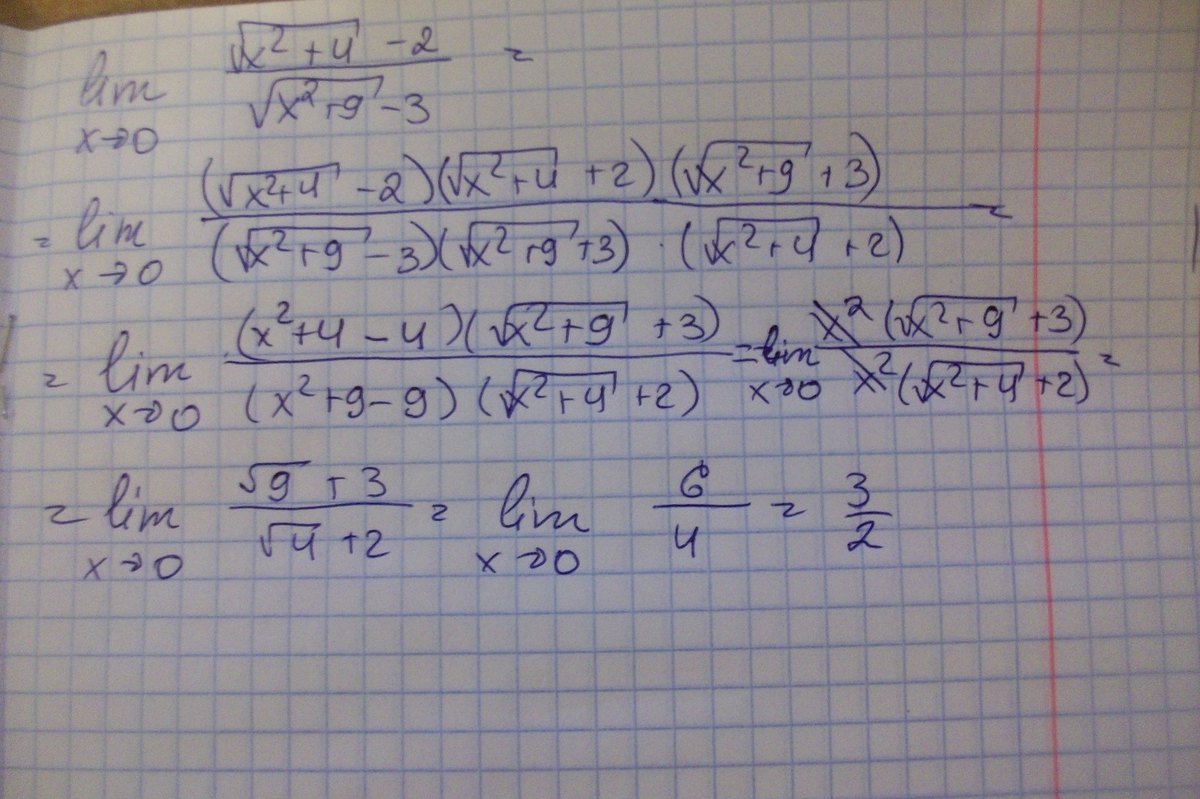 lim x→0 (√(x²+4) - 2) / (√(x²+9) - 3) =
= lim x→0 ((√(x²+4) - 2)(√(x²+4) + 2)(√(x²+9) + 3)) / ((√(x²+9) - 3)(√(x²+9) + 3) · (√(x²+4) + 2)) =
= lim x→0 ((x²+4-4)(√(x²+9) + 3)) / ((x²+9-9)(√(x²+4) + 2)) = lim x→0 (x²(√(x²+9) + 3)) / (x²(√(x²+4) + 2)) =
= lim x→0 (√9 + 3) / (√4 + 2) = lim x→0 6/4 = 3/2